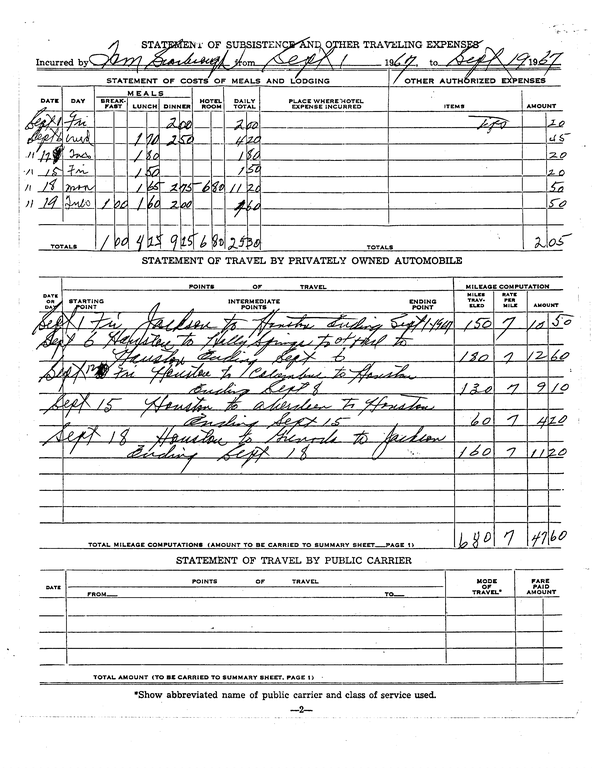 STATEMENT OF SUBSISTENCE AND OTHER TRAVELING EXPENSES
Incurred by Tom Scarbrough from Sept 1 1967. to Sept 19 1967
STATEMENT OF COSTS OF MEALS AND LODGING OTHER AUTHORIZED EXPENSES
MEALS
DATE DAY BREAK-FAST LUNCH DINNER HOTEL ROOM DAILY TOTAL PLACE WHERE HOTEL EXPENSE INCURRED ITEMS AMOUNT
Sept 1 Fri 2 00 2 00 tips 20
Sept 6 Wed 1 70 2 50 4 20 45
" 12 Tues 1 80 1 80 20
" 15 Fri 1 50 1 50 20
" 18 mon 1 65 2 75 6 80 11 20 50
" 19 Tues 1 00 1 60 2 00 4 60 50
TOTALS 1 00 9 25 6 80 25 30 TOTALS 2 05
STATEMENT OF TRAVEL BY PRIVATELY OWNED AUTOMOBILE
POINTS OF TRAVEL MILEAGE COMPUTATION
DATE OR DAY STARTING POINT INTERMEDIATE POINTS ENDING POINT MILES TRAV-ELED RATE PER MILE AMOUNT
Sept 1 Fri Jackson to Houston Ending Sept 1 1967 150 7 10 50
Sept 6 Houston to Holly Springs to Oxford to
Houston Ending Sept 6 180 7 12 60
Sept Fri Houston to Columbus to Houston
Ending Sept 8 130 7 9 10
Sept 15 Houston to Aberdeen to Houston
Ending Sept 15 60 7 4 20
Sept 18 Houston to Grenada to Jackson
Ending Sept 18 160 7 11 20
TOTAL MILEAGE COMPUTATIONS (AMOUNT TO BE CARRIED TO SUMMARY SHEET—PAGE 1) 680 7 47 60
STATEMENT OF TRAVEL BY PUBLIC CARRIER
POINTS OF TRAVEL
DATE FROM TO MODE OF TRAVEL* FARE PAID AMOUNT
TOTAL AMOUNT (TO BE CARRIED TO SUMMARY SHEET, PAGE 1)
*Show abbreviated name of public carrier and class of service used.
—2—